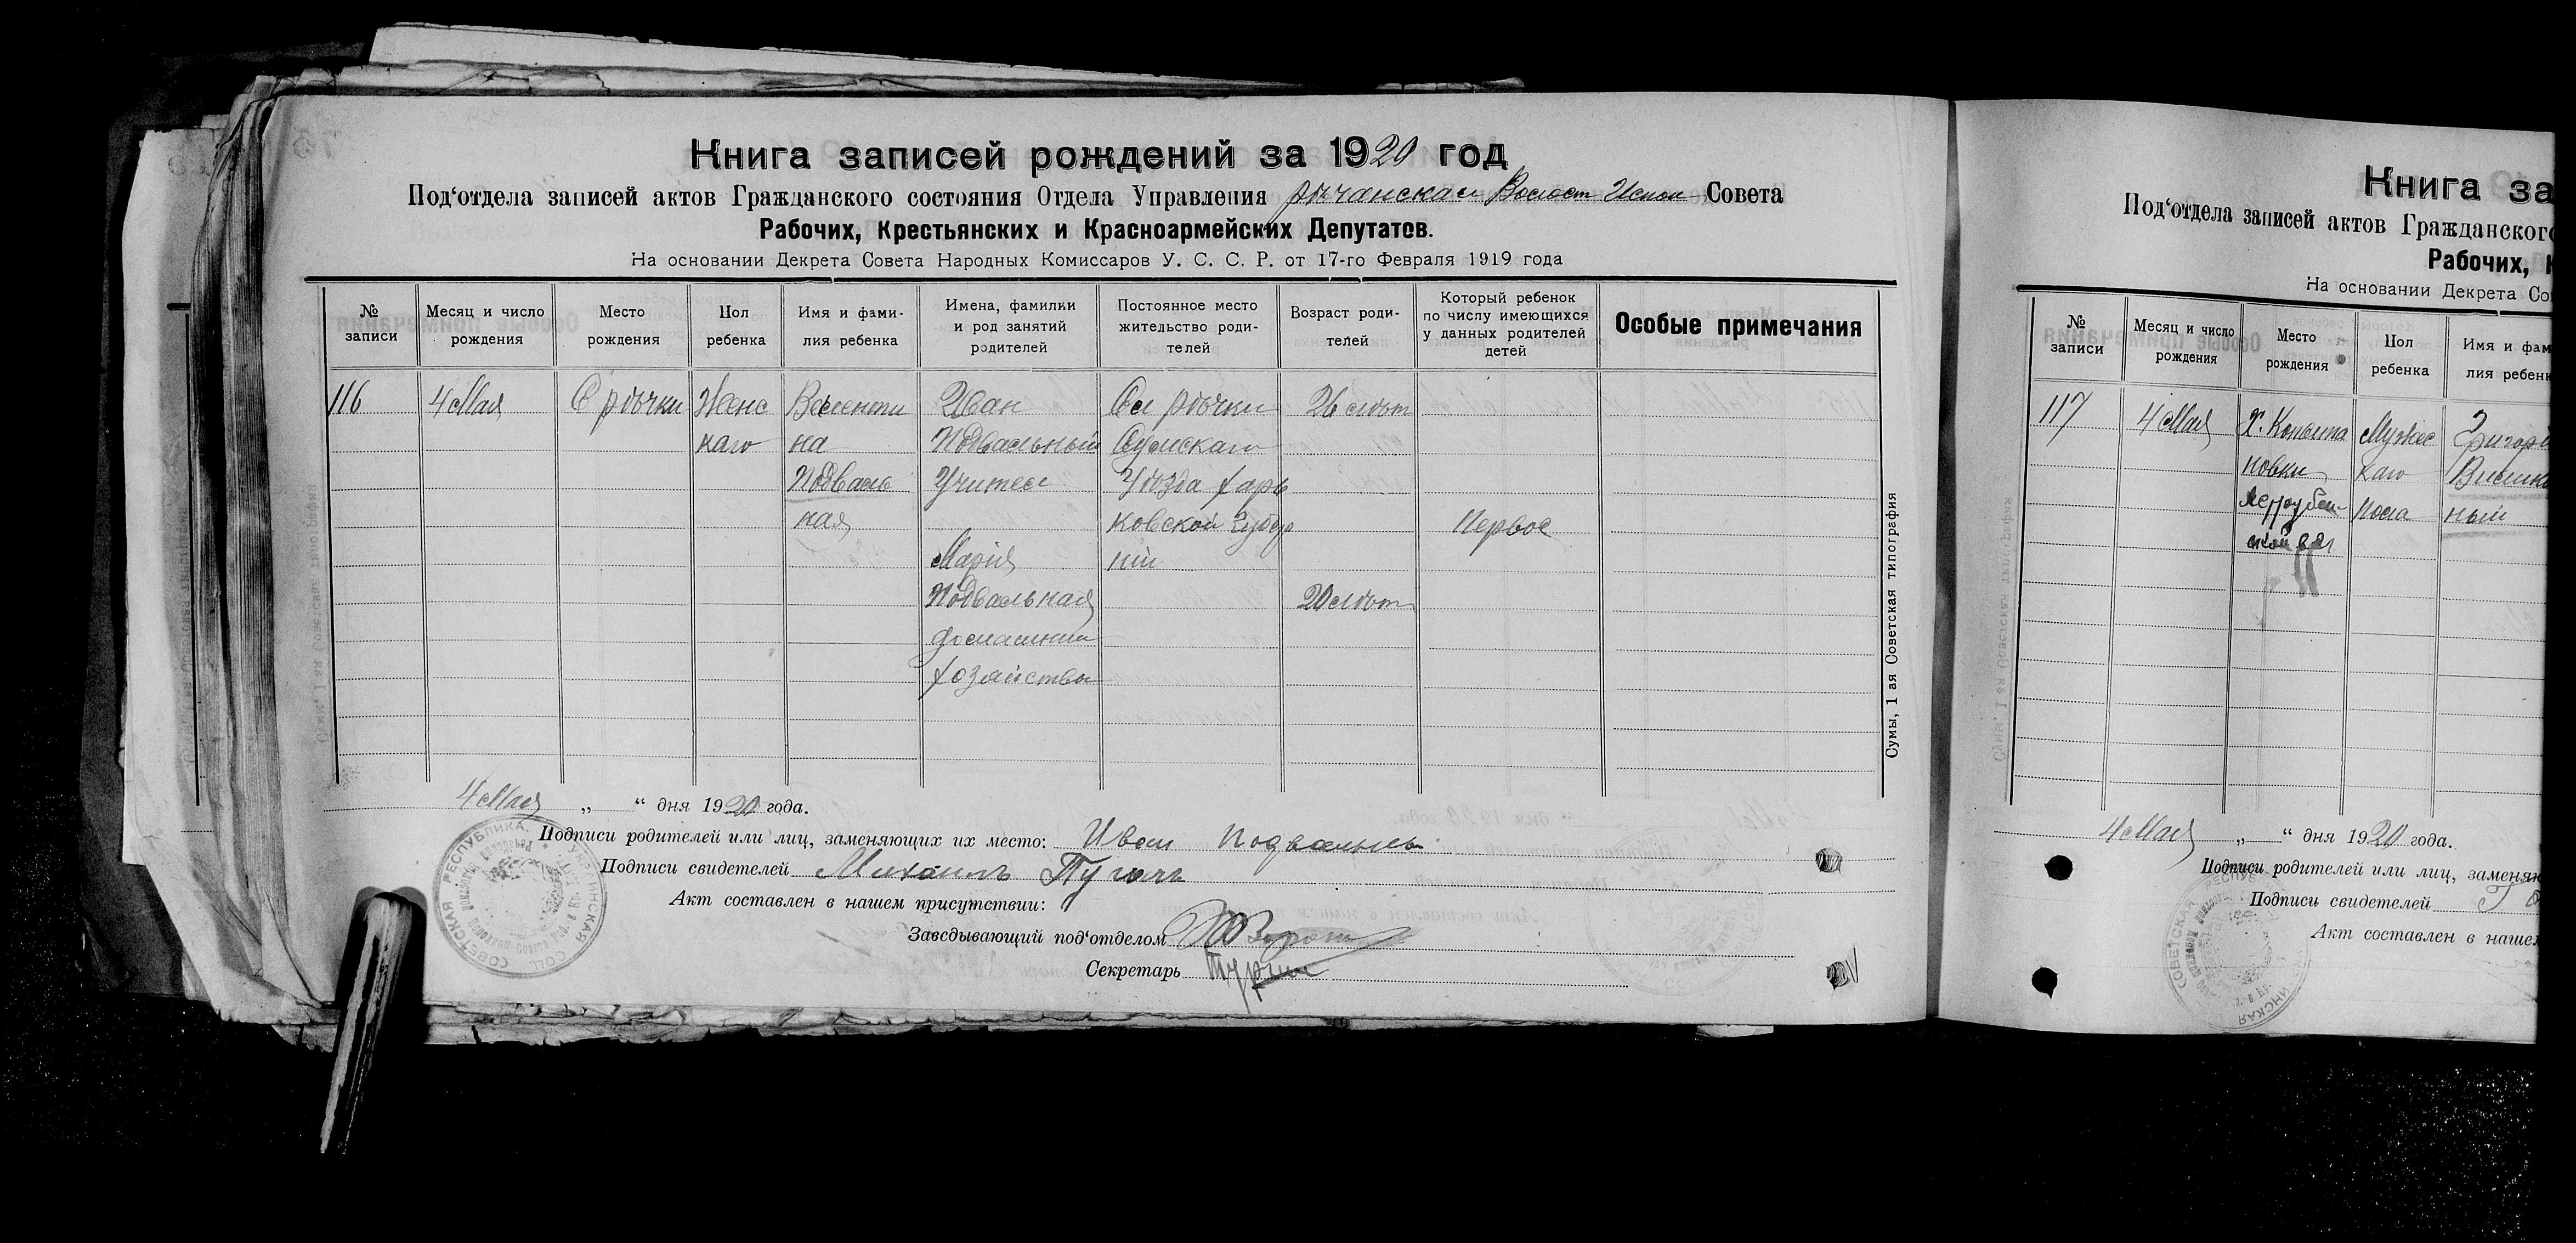 Книга записей рождений за 1920 год
Под‘отдела записей актов Гражданского состояния Отдела Управления Рѣчанская Волост Испол Совета
Рабочих, Крестьянских и Красноармейских Депутатов.
На основании Декрета Совета Народных Комиссаров У. С. С. Р. от 17-го Февраля 1919 года
№ записи
Месяц и число рождения
Место рождения
Пол ребенка
Имя и фами-
лия ребенка
Имена, фамилки
и род занятий
родителей
Постоянное место
жительство роди-
телей
Возраст роди-
телей
Который ребенок
по числу имеющихся
у данных родителей
детей
Особые примечания
116
4 Мая
С Рѣчки
Женс
каго
Валенти
на
Подваль
ная
Иван
Подвальный
Учител
Марія
Подвальная
домашни
хозяйства
Сл Рѣчки
Сумскаго
Уѣзда Харь
ковской Губер
ніи
26 лѣт
20 лѣт
Первое
Сумы, 1 ая Советская типография
4 Мая „ “ дня 1920 года.
Подписи родителей или лиц, заменяющих их место: Иван Подвальны
Подписи свидетелей Михаилъ
Акт составлен в нашем присутствии:
Заведывающий под‘отделом
Секретарь
СОВЕТСКАЯ РЕСПУБЛИКА
Книга за
Под‘отдела записей актов Гражданского
Рабочих, К
На основании Декрета Со
№ записи
Месяц и число рождения
Место рождения
Пол ребенка
Имя и фам
лия ребенк
117
4 Мая
Х. Копыта
новки
Мужес
каго
пола
Григорі
ный
4 Мая „ “ дня 1920 года.
Подписи родителей или лиц, заменяю
Подписи свидетелей
Акт составлен в нашем